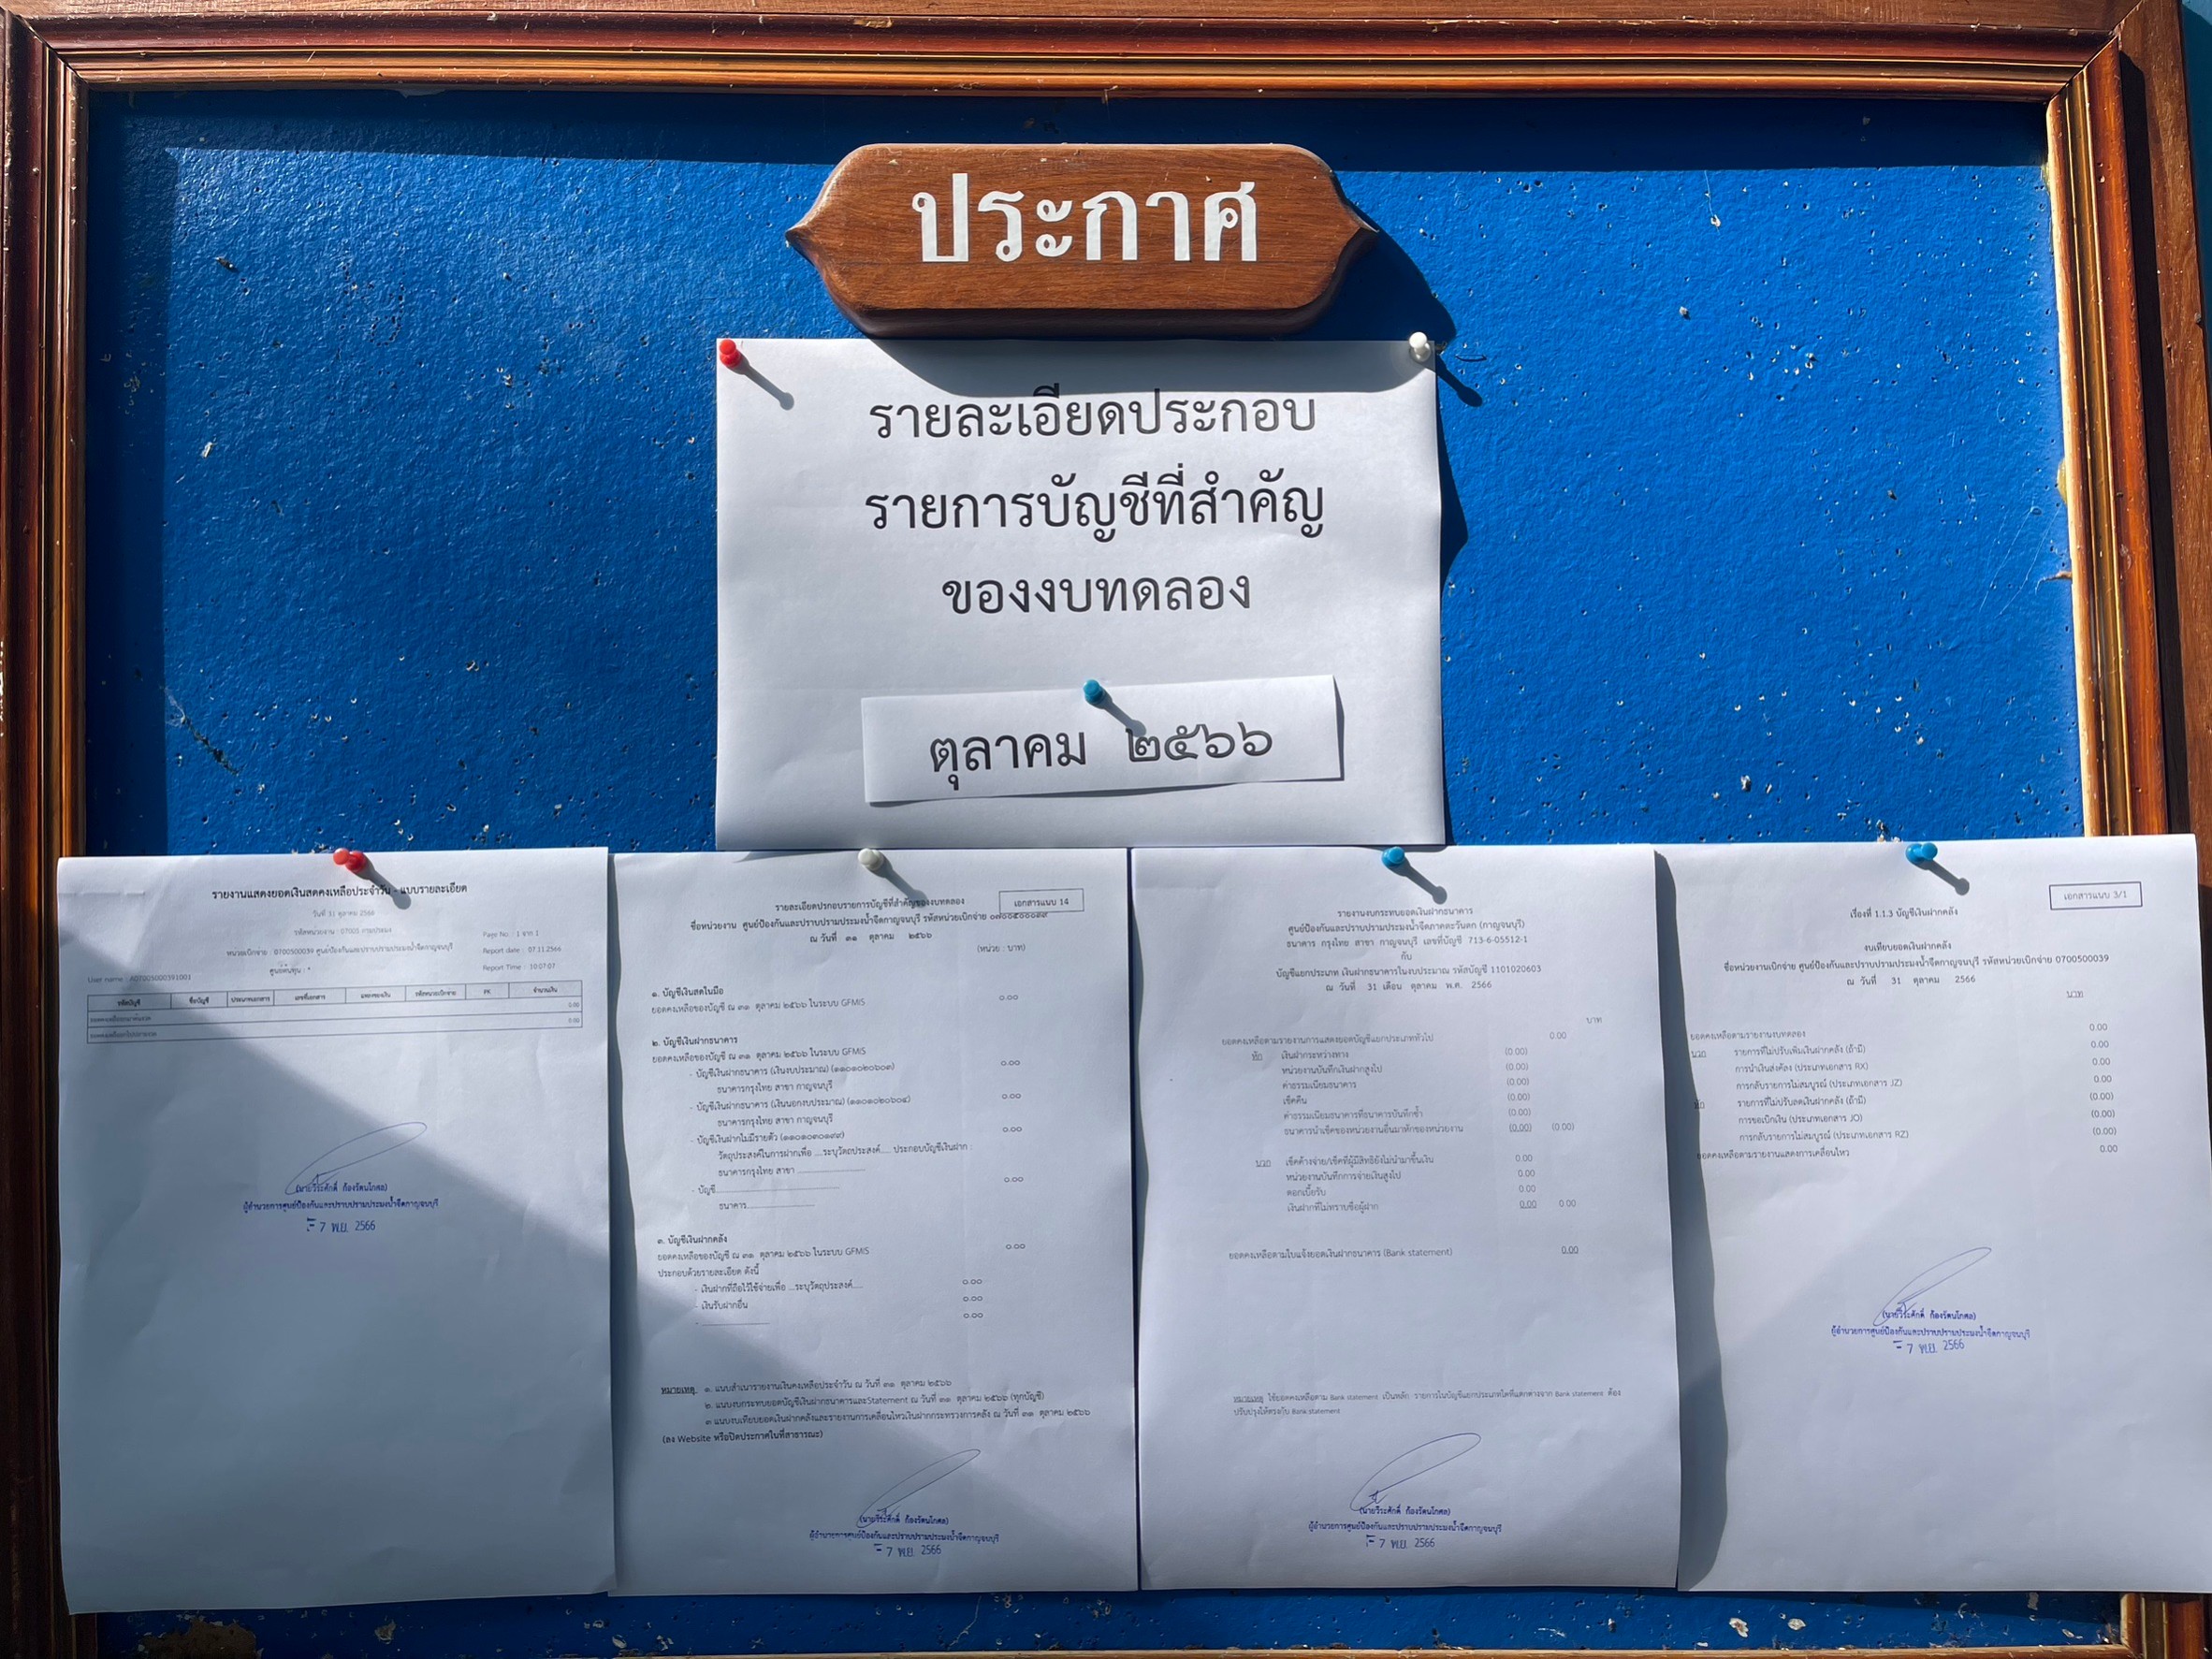 ประกาศ
รายละเอียดประกอบ
รายการบัญชีที่สำคัญ
ของงบทดลอง
ตุลาคม ๒๕๖๖
รายงานแสดงยอดเงินสดคงเหลือประจำวัน - แบบรายละเอียด
วันที่ 31 ตุลาคม 2566
รหัสหน่วยงาน : 07005 กรมประมง
Page No. : 1 จาก 1
หน่วยเบิกจ่าย : 0700500039 ศูนย์ป้องกันและปราบปรามประมงน้ำจืดกาญจนบุรี
Report date : 07.11.2566
ศูนย์ต้นทุน : *
Report Time : 10:07:07
User name : A07005000391001
รหัสบัญชี ชื่อบัญชี ประเภทเอกสาร เลขที่เอกสาร รหัสหน่วยเบิกจ่าย PK จำนวนเงิน
0.00
0.00
(นายวีระศักดิ์ ก้องรัตนโกศล)
ผู้อำนวยการศูนย์ป้องกันและปราบปรามประมงน้ำจืดกาญจนบุรี
- 7 พ.ย. 2566
เอกสารแนบ 14
รายละเอียดประกอบรายการบัญชีที่สำคัญของงบทดลอง
ชื่อหน่วยงาน ศูนย์ป้องกันและปราบปรามประมงน้ำจืดกาญจนบุรี รหัสหน่วยเบิกจ่าย ๐๗๐๐๕๐๐๐๓๙
ณ วันที่ ๓๑ ตุลาคม ๒๕๖๖
(หน่วย : บาท)
๑. บัญชีเงินสดในมือ
ยอดคงเหลือของบัญชี ณ ๓๑ ตุลาคม ๒๕๖๖ ในระบบ GFMIS ๐.๐๐
๒. บัญชีเงินฝากธนาคาร
ยอดคงเหลือของบัญชี ณ ๓๑ ตุลาคม ๒๕๖๖ ในระบบ GFMIS
- บัญชีเงินฝากธนาคาร (เงินงบประมาณ) (๑๑๐๑๐๒๐๖๐๓) ๐.๐๐
ธนาคารกรุงไทย สาขา กาญจนบุรี
- บัญชีเงินฝากธนาคาร (เงินนอกงบประมาณ) (๑๑๐๑๐๒๐๖๐๔) ๐.๐๐
ธนาคารกรุงไทย สาขา กาญจนบุรี
- บัญชีเงินฝากไม่มีรายตัว (๑๑๐๑๐๓๐๑๙๙) ๐.๐๐
วัตถุประสงค์ในการฝากเพื่อ ....ระบุวัตถุประสงค์..... ประกอบบัญชีเงินฝาก :
ธนาคารกรุงไทย สาขา ..............................
- บัญชี.............................. ๐.๐๐
ธนาคาร..............................
๓. บัญชีเงินฝากคลัง
ยอดคงเหลือของบัญชี ณ ๓๑ ตุลาคม ๒๕๖๖ ในระบบ GFMIS ๐.๐๐
ประกอบด้วยรายละเอียด ดังนี้
- เงินฝากที่ถือไว้ใช้จ่ายเพื่อ ....ระบุวัตถุประสงค์..... ๐.๐๐
- เงินรับฝากอื่น ๐.๐๐
- .............................. ๐.๐๐
หมายเหตุ ๑. แนบสำเนารายงานเงินคงเหลือประจำวัน ณ วันที่ ๓๑ ตุลาคม ๒๕๖๖
๒. แนบงบกระทบยอดบัญชีเงินฝากธนาคารและStatement ณ วันที่ ๓๑ ตุลาคม ๒๕๖๖ (ทุกบัญชี)
๓ แนบงบเทียบยอดเงินฝากคลังและรายงานการเคลื่อนไหวเงินฝากกระทรวงการคลัง ณ วันที่ ๓๑ ตุลาคม ๒๕๖๖
(ลง Website หรือปิดประกาศในที่สาธารณะ)
(นายวีระศักดิ์ ก้องรัตนโกศล)
ผู้อำนวยการศูนย์ป้องกันและปราบปรามประมงน้ำจืดกาญจนบุรี
- 7 พ.ย. 2566
รายงานงบกระทบยอดเงินฝากธนาคาร
ศูนย์ป้องกันและปราบปรามประมงน้ำจืดภาคตะวันตก (กาญจนบุรี)
ธนาคาร กรุงไทย สาขา กาญจนบุรี เลขที่บัญชี 713-6-05512-1
กับ
บัญชีแยกประเภท เงินฝากธนาคารในงบประมาณ รหัสบัญชี 1101020603
ณ วันที่ 31 เดือน ตุลาคม พ.ศ. 2566
บาท
ยอดคงเหลือตามรายงานการแสดงยอดบัญชีแยกประเภททั่วไป 0.00
หัก เงินฝากระหว่างทาง (0.00)
หน่วยงานบันทึกเงินฝากสูงไป (0.00)
ค่าธรรมเนียมธนาคาร (0.00)
เช็คคืน (0.00)
ค่าธรรมเนียมธนาคารที่ธนาคารบันทึกซ้ำ (0.00)
ธนาคารนำเช็คของหน่วยงานอื่นมาหักของหน่วยงาน (0.00) (0.00)
บวก เช็คค้างจ่าย/เช็คที่ผู้มีสิทธิยังไม่นำมาขึ้นเงิน 0.00
หน่วยงานบันทึกการจ่ายเงินสูงไป 0.00
ดอกเบี้ยรับ 0.00
เงินฝากที่ไม่ทราบชื่อผู้ฝาก 0.00 0.00
ยอดคงเหลือตามใบแจ้งยอดเงินฝากธนาคาร (Bank statement) 0.00
หมายเหตุ ใช้ยอดคงเหลือตาม Bank statement เป็นหลัก รายการในบัญชีแยกประเภทใดที่แตกต่างจาก Bank statement ต้อง
ปรับปรุงให้ตรงกับ Bank statement
(นายวีระศักดิ์ ก้องรัตนโกศล)
ผู้อำนวยการศูนย์ป้องกันและปราบปรามประมงน้ำจืดกาญจนบุรี
- 7 พ.ย. 2566
เอกสารแนบ 3/1
เรื่องที่ 1.1.3 บัญชีเงินฝากคลัง
งบเทียบยอดเงินฝากคลัง
ชื่อหน่วยงานเบิกจ่าย ศูนย์ป้องกันและปราบปรามประมงน้ำจืดกาญจนบุรี รหัสหน่วยเบิกจ่าย 0700500039
ณ วันที่ 31 ตุลาคม 2566
บาท
ยอดคงเหลือตามรายงานงบทดลอง 0.00
บวก รายการที่ไม่ปรับเพิ่มเงินฝากคลัง (ถ้ามี) 0.00
การนำเงินส่งคลัง (ประเภทเอกสาร RX) 0.00
การกลับรายการไม่สมบูรณ์ (ประเภทเอกสาร JZ) 0.00
หัก รายการที่ไม่ปรับลดเงินฝากคลัง (ถ้ามี) (0.00)
การขอเบิกเงิน (ประเภทเอกสาร JO) (0.00)
การกลับรายการไม่สมบูรณ์ (ประเภทเอกสาร RZ) (0.00)
ยอดคงเหลือตามรายงานแสดงการเคลื่อนไหว 0.00
(นายวีระศักดิ์ ก้องรัตนโกศล)
ผู้อำนวยการศูนย์ป้องกันและปราบปรามประมงน้ำจืดกาญจนบุรี
- 7 พ.ย. 2566